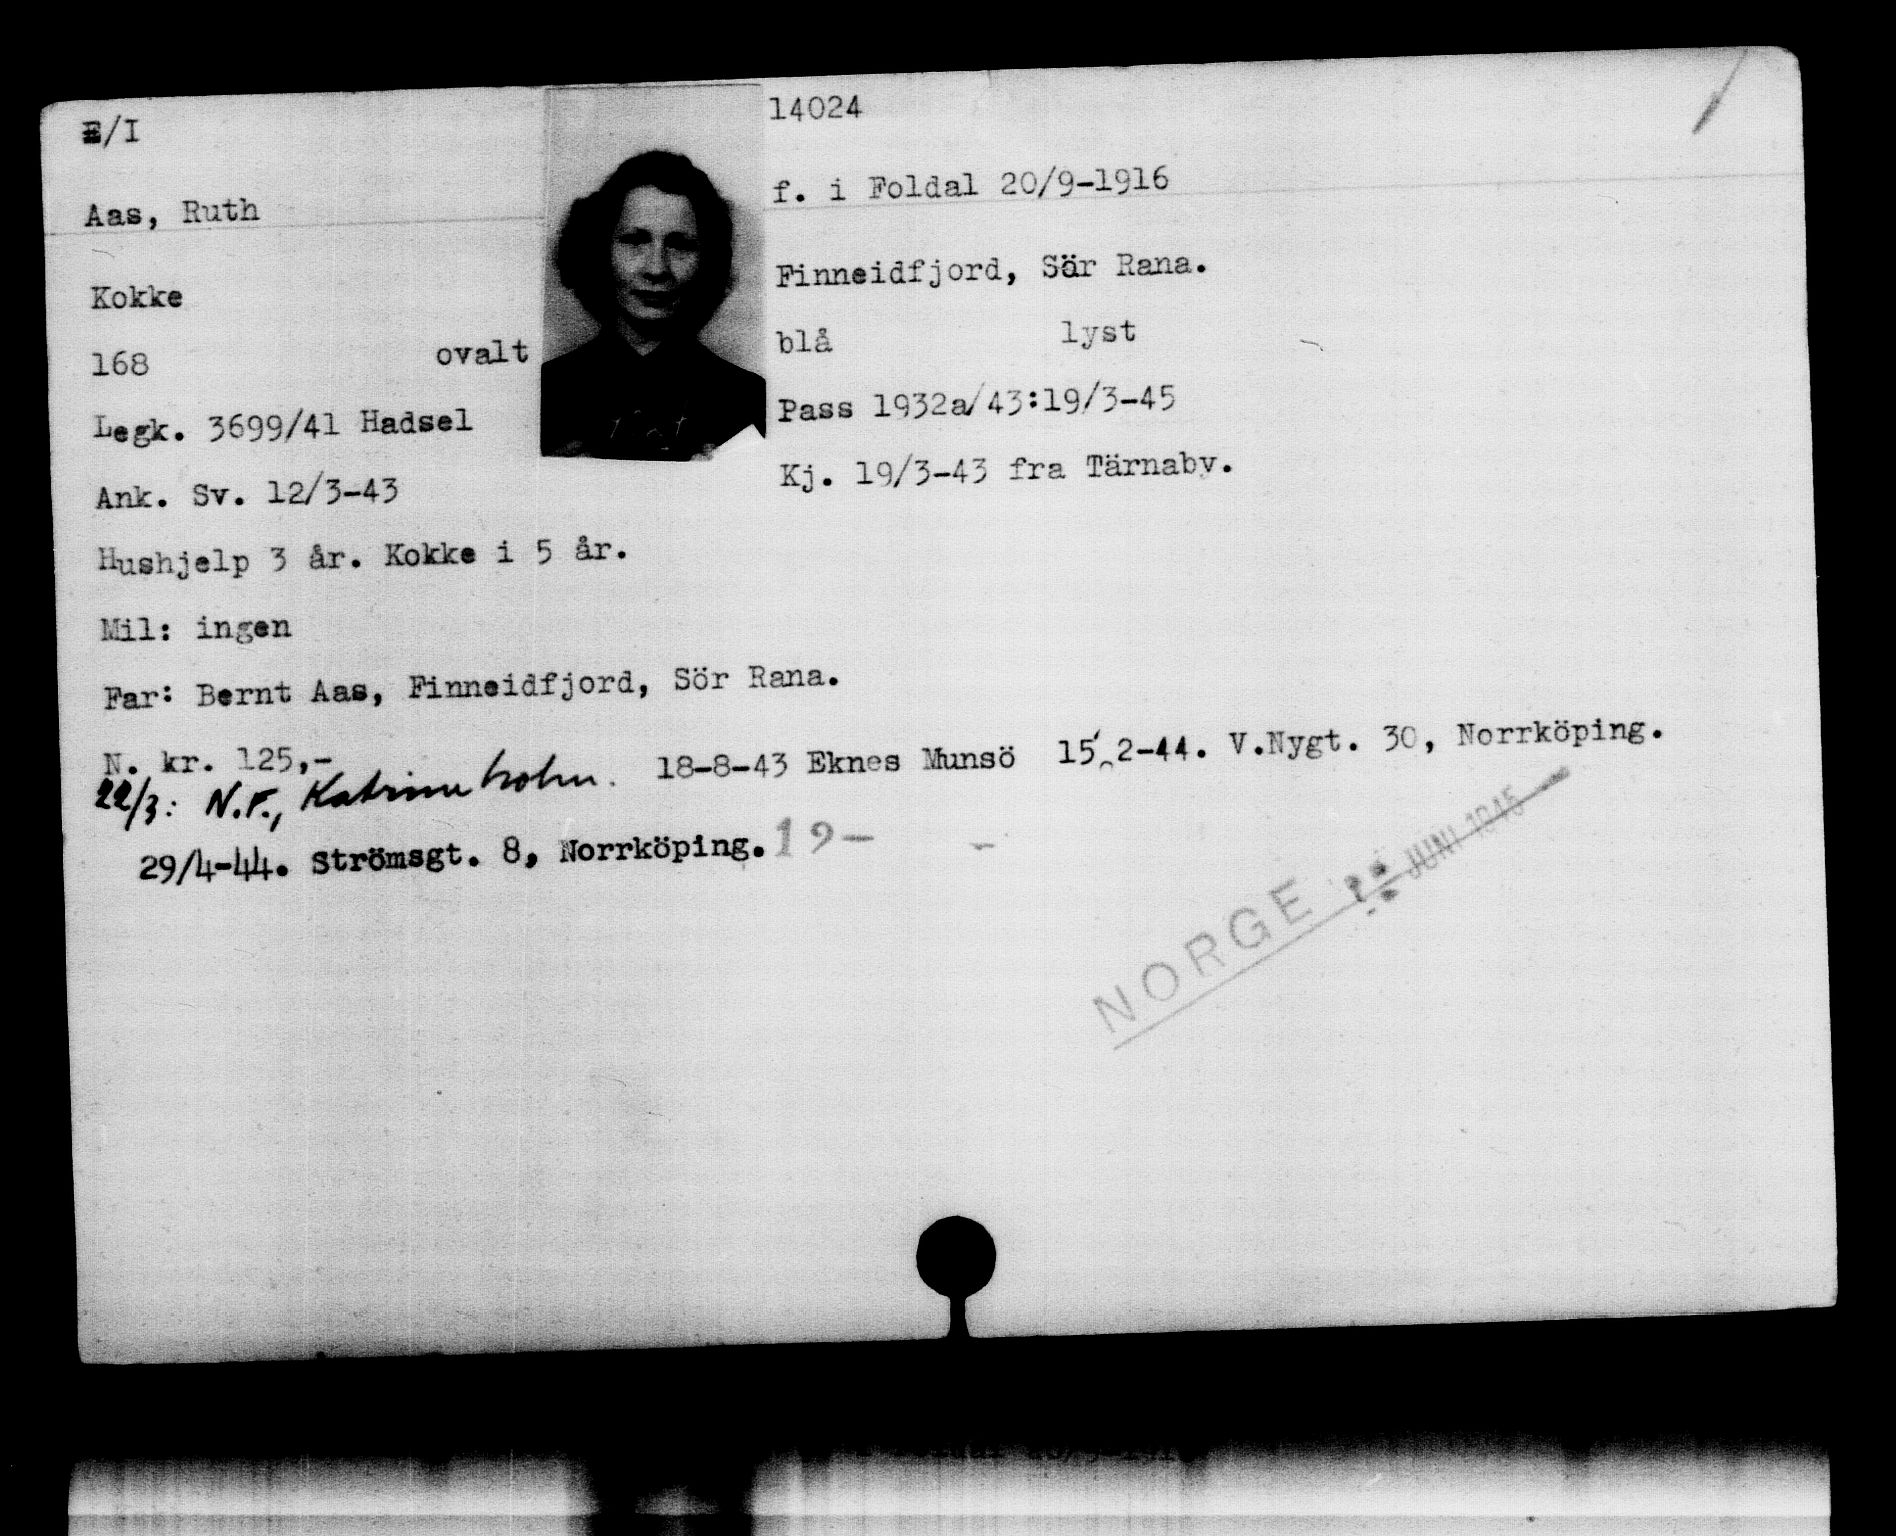 E/I
14024
Aas, Ruth
f. i Foldal 20/9-1916
Kokke
Finneidfjord, Sär Rana.
168 ovalt
blå lyst
Legk. 3699/41 Hadsel
Pass 1932a/43:19/3-45
Ank. Sv. 12/3-43
Kj. 19/3-43 fra Tärnaby.
Hushjelp 3 år. Kokke i 5 år.
Mil: ingen
Far: Bernt Aas, Finneidfjord, Sör Rana.
N. kr. 125,- 18-8-43 Eknes Munsö 15 2-44. V.Nygt. 30, Norrköping.
22/3: N.F., Katrineholm.
29/4-44. Strömsgt. 8, Norrköping. 19-
NORGE JUNI 1945